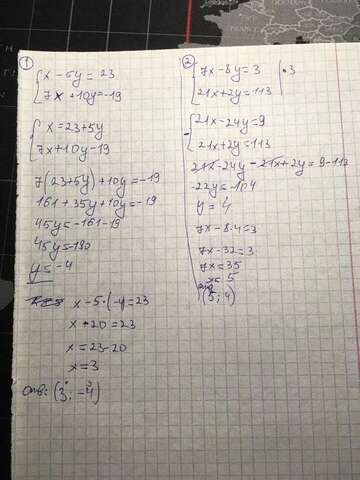 1
x - 5y = 23
7x + 10y = -19
x = 23 + 5y
7x + 10y - 19
7(23+5y) + 10y = -19
161 + 35y + 10y = -19
45y = -161 - 19
45y = -180
y = -4
x - 5·(-4 = 23
x + 20 = 23
x = 23 - 20
x = 3
Отв: (3; -4)
2
7x - 8y = 3 | ·3
21x + 2y = 113
21x - 24y = 9
21x + 2y = 113
21x - 24y - 21x + 2y = 9 - 113
-22y = -104
y = 4
7x - 8·4 = 3
7x - 32 = 3
7x = 35
x = 5
(5; 4)